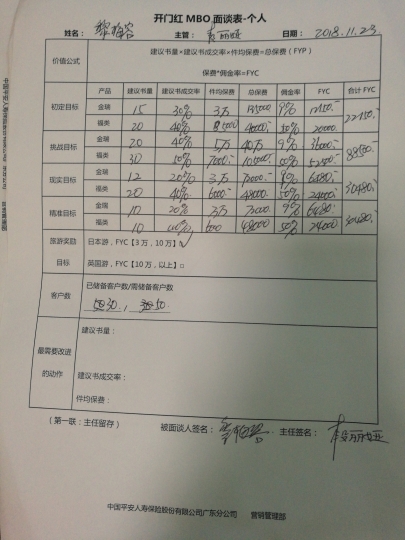 开门红 MBO 面谈表-个人
姓名： 主管： 日期：2018.11.23
价值公式
建议书量×建议书成交率×件均保费=总保费（FYP）
保费*佣金率=FYC
产品 建议书量 建议书成交率 件均保费 总保费 佣金率 FYC 合计 FYC
初定目标 金瑞 15 30% 3万 135000 9% 12150.- 22150.-
福类 20 40% 40000.- 50% 20000
挑战目标 金瑞 20 40% 5万 40万 9% 36000.- 88500.-
福类 30 50% 7000.- 105000.- 50% 52500.-
现实目标 金瑞 12 20% 3万 9% 6480.- 30480.-
福类 20 40% 6000.- 48000.- 50% 24000.-
精准目标 金瑞 10 20% 3万 9% 6480.- 30480.-
福类 10 48000 50% 24000
旅游奖励
目标
日本游，FYC【3 万，10 万】√
英国游，FYC【10 万，以上】□
客户数
已储备客户数/需储备客户数
30. 50.
最需要改进
的动作
建议书量：
建议书成交率：
件均保费：
（第一联：主任留存） 被面谈人签名： 主任签名：
中国平安人寿保险股份有限公司广东分公司 营销管理部